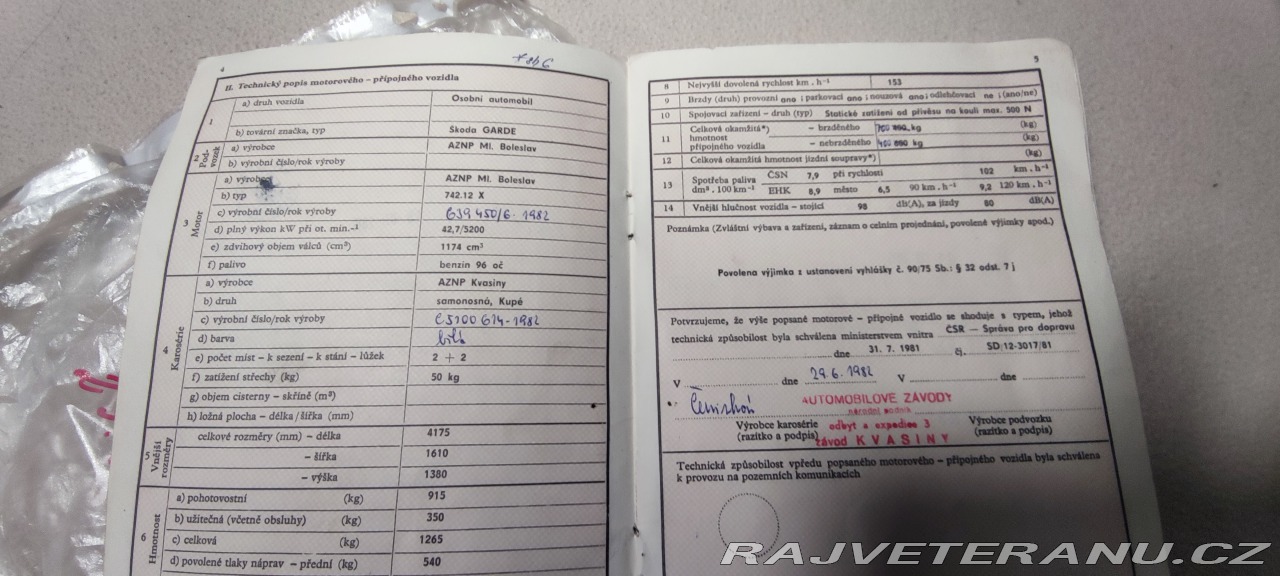 4
II. Technický popis motorového – přípojného vozidla
1
a) druh vozidla Osobní automobil
b) tovární značka, typ Škoda GARDE
2 Pod- vozek
a) výrobce AZNP Ml. Boleslav
b) výrobní číslo/rok výroby
3 Motor
a) výrobce AZNP Ml. Boleslav
b) typ 742.12 X
c) výrobní číslo/rok výroby 639 450/6-1982
d) plný výkon kW při ot. min.-1 42,7/5200
e) zdvihový objem válců (cm³) 1174 cm³
f) palivo benzin 96 oč
4 Karosérie
a) výrobce AZNP Kvasiny
b) druh samonosná, Kupé
c) výrobní číslo/rok výroby C5100614-1982
d) barva bílá
e) počet míst – k sezení – k stání – lůžek 2 + 2
f) zatížení střechy (kg) 50 kg
g) objem cisterny – skříně (m³)
h) ložná plocha – délka/šířka (mm)
5 Vnější rozměry
celkové rozměry (mm) – délka 4175
– šířka 1610
– výška 1380
6 Hmotnost
a) pohotovostní (kg) 915
b) užitečná (včetně obsluhy) (kg) 350
c) celková (kg) 1265
d) povolené tlaky náprav – přední (kg) 540
5
8 Nejvyšší dovolená rychlost km . h-1 153
9 Brzdy (druh) provozní ano ; parkovací ano ; nouzová ano ; odlehčovací ne ; (ano/ne)
10 Spojovací zařízení – druh (typ) Statické zatížení od přívěsu na kouli max. 500 N
11 Celková okamžitá*) – brzděného kg (kg)
hmotnost
přípojného vozidla – nebrzděného 400 kg (kg)
12 Celková okamžitá hmotnost jízdní soupravy*) (kg)
13 Spotřeba paliva ČSN 7,9 při rychlosti 102 km . h-1
dm³ . 100 km-1 EHK 8,9 město 6,5 90 km . h-1 9,2 120 km . h-1
14 Vnější hlučnost vozidla – stojící 98 dB(A), za jízdy 80 dB(A)
Poznámka (Zvláštní výbava a zařízení, záznam o celním projednání, povolené výjimky apod.)
Povolena výjimka z ustanovení vyhlášky č. 90/75 Sb.: § 32 odst. 7 j
Potvrzujeme, že výše popsané motorové – přípojné vozidlo se shoduje s typem, jehož
technická způsobilost byla schválena ministerstvem vnitra ČSR — Správa pro dopravu
dne 31. 7. 1981 čj. SD/12-3017/81
V dne 29.6.1982 V dne
AUTOMOBILOVÉ ZÁVODY
národní podnik
Výrobce karosérie odbyt a expedice 3 Výrobce podvozku
(razítko a podpis) závod KVASINY (razítko a podpis)
Technická způsobilost vpředu popsaného motorového – přípojného vozidla byla schválena
k provozu na pozemních komunikacích
RAJVETERANU.CZ